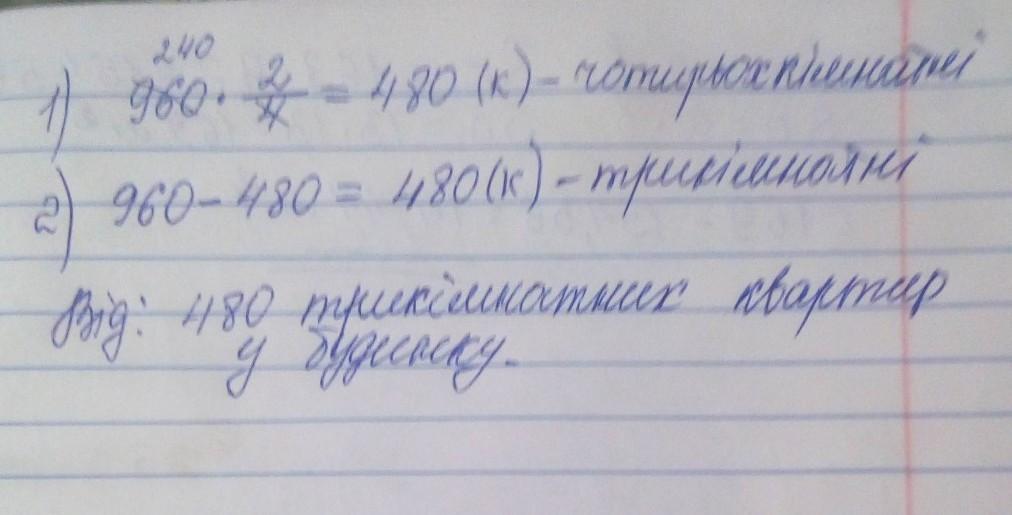 240
1) 960 · 2/4 = 480 (к) - чотирьохкімнатні
2) 960 - 480 = 480 (к) - трикімнатні
Від: 480 трикімнатних квартир
у будинку.